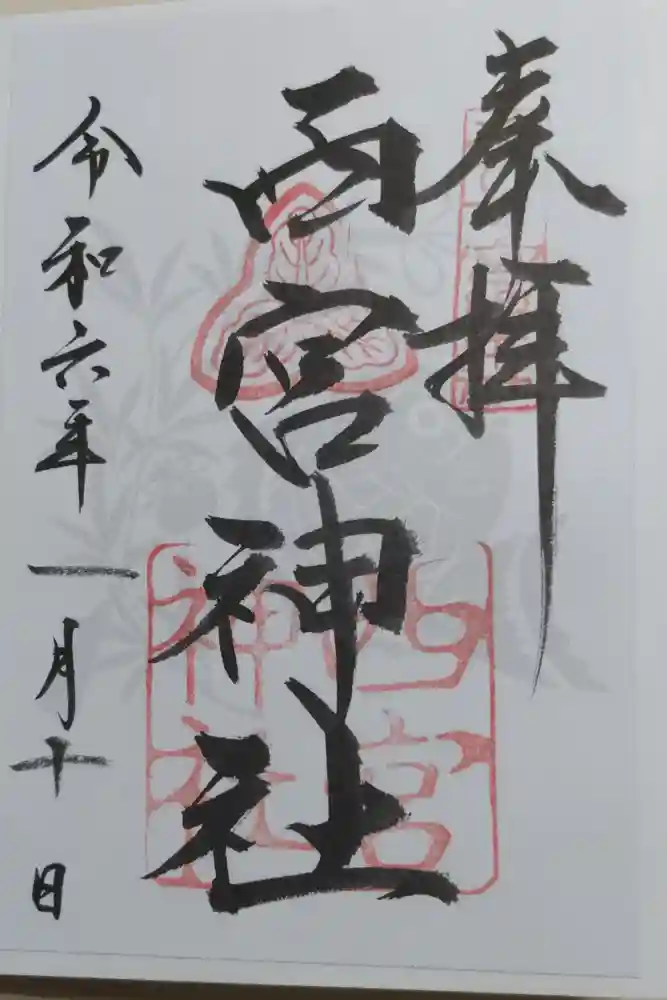 奉拝
西宮神社
令和六年一月十日
西宮
神社